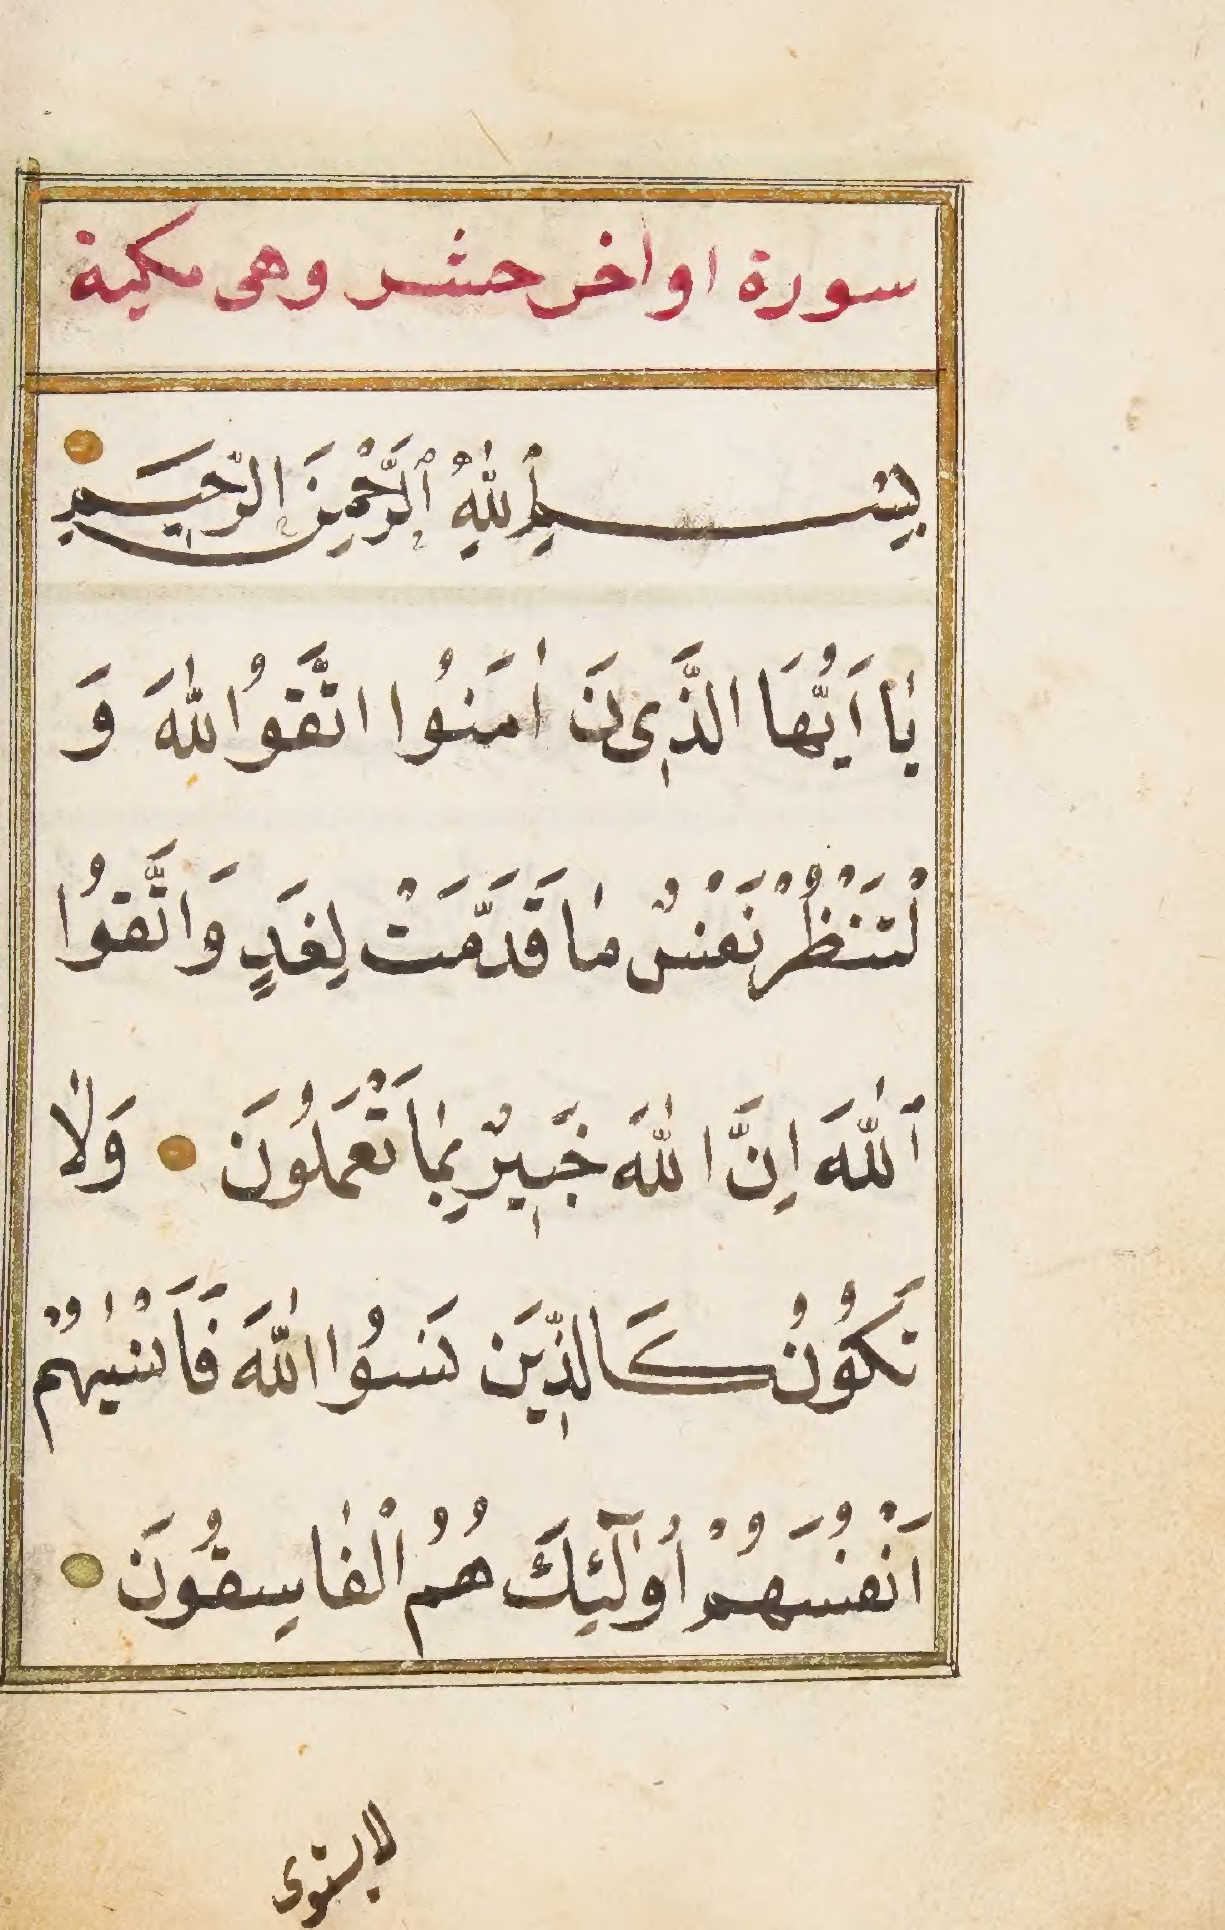 سورة اواخر حشر وهى مكية
بِسْمِ اللّٰهِ الرَّحْمٰنِ الرَّحِيمِ
يَا اَيُّهَا الَّذِينَ اٰمَنُوا اتَّقُوا اللّٰهَ وَ
لْتَنْظُرْ نَفْسٌ مَا قَدَّمَتْ لِغَدٍ وَاتَّقُوا
اللّٰهَ اِنَّ اللّٰهَ خَبِيرٌ بِمَا تَعْمَلُونَ وَلَا
تَكُونُ كَالَّذِينَ نَسُوا اللّٰهَ فَاَنْسٰيهُمْ
اَنْفُسَهُمْ اُولٰٓئِكَ هُمُ الْفَاسِقُونَ
لايستوى